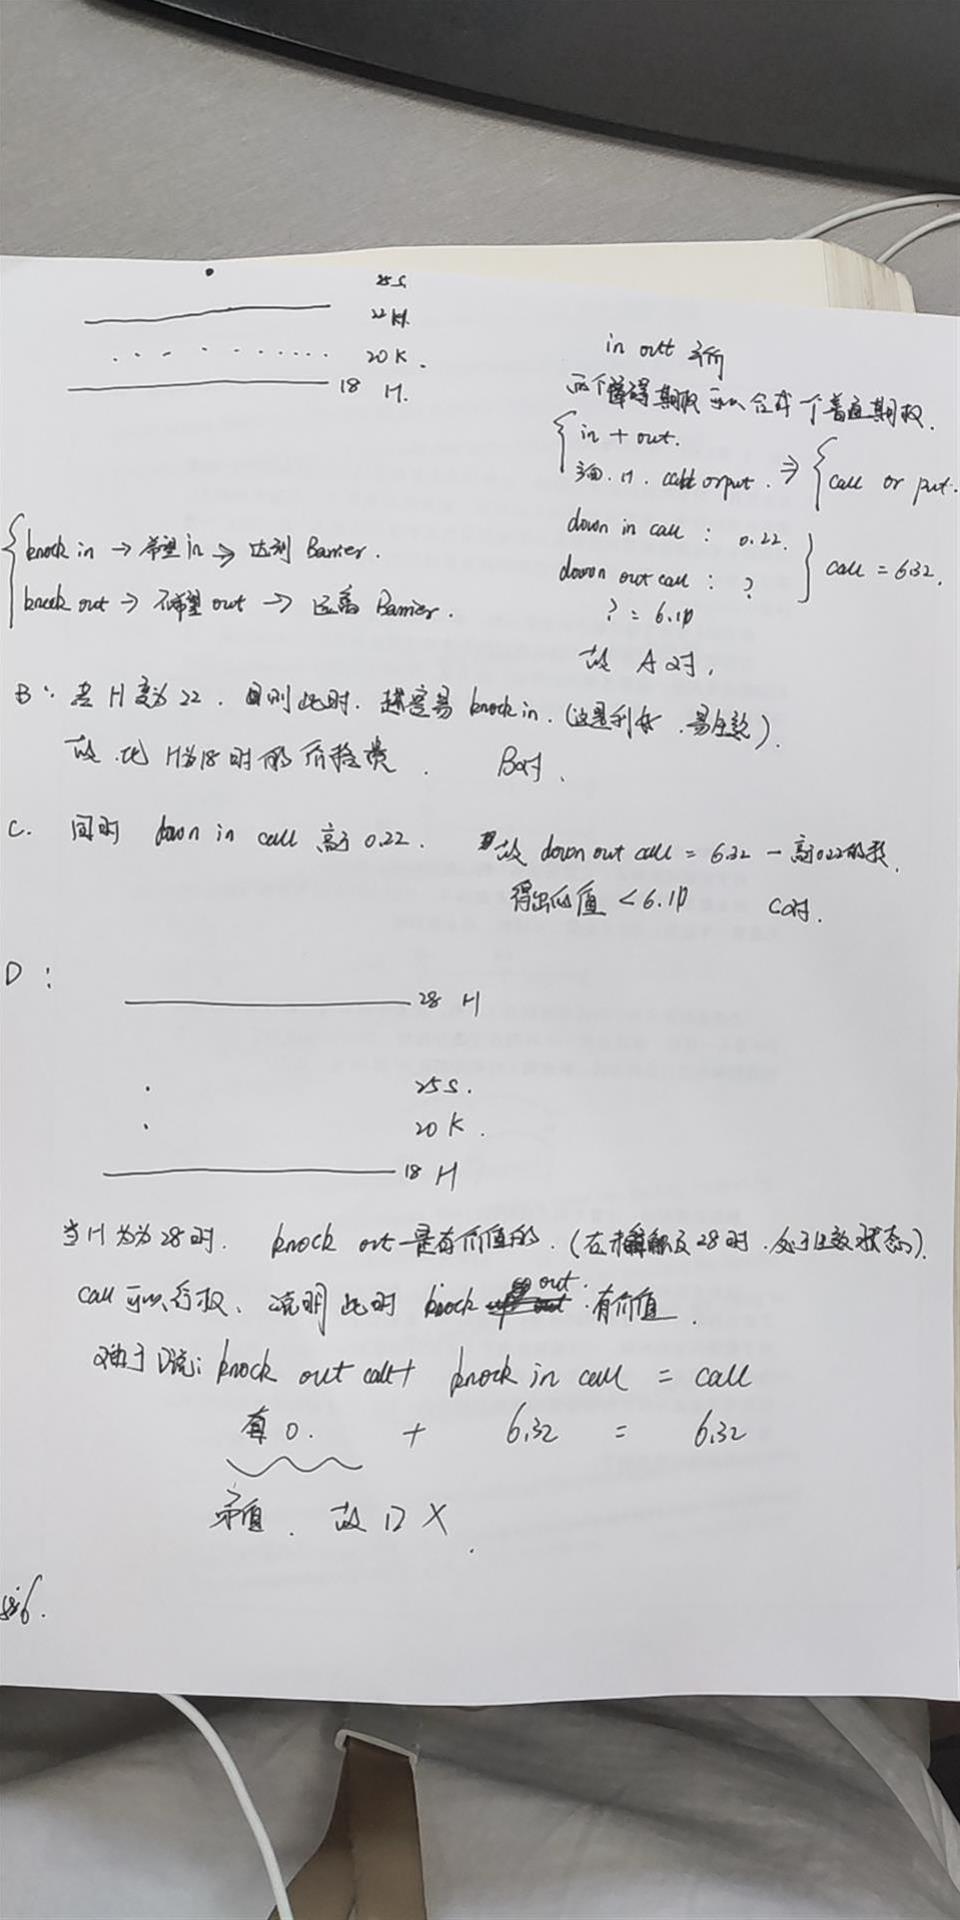 25 S
22 H.
20 K.
18 H.
in out
两个障碍期权可以合成一个普通期权.
in + out.
H. call or put. ⇒ call or put.
down in call : 0.22.
down out call : ?
call = 6.32.
? = 6.10
故 A对,
knock in → 希望in → 达到 Barrier.
knock out → 不希望out → 远离 Barrier.
B: 若 H变为22. 则此时. 越容易 knock in. (这是利好. 易生效).
故.比 H为18时的价格贵. B对.
C. 同时 down in call 高于0.22. 故 down out call = 6.32 - 高于0.22的数.
得出的值 < 6.10 C对.
D:
28 H
25 S.
20 K.
18 H
当H为28时. knock out 是有价值的. (在未触及28时.处于生效状态).
call 可以行权、说明此时 knock out 有价值.
对于D说: knock out call + knock in call = call
0. + 6.32 = 6.32
故 D X.